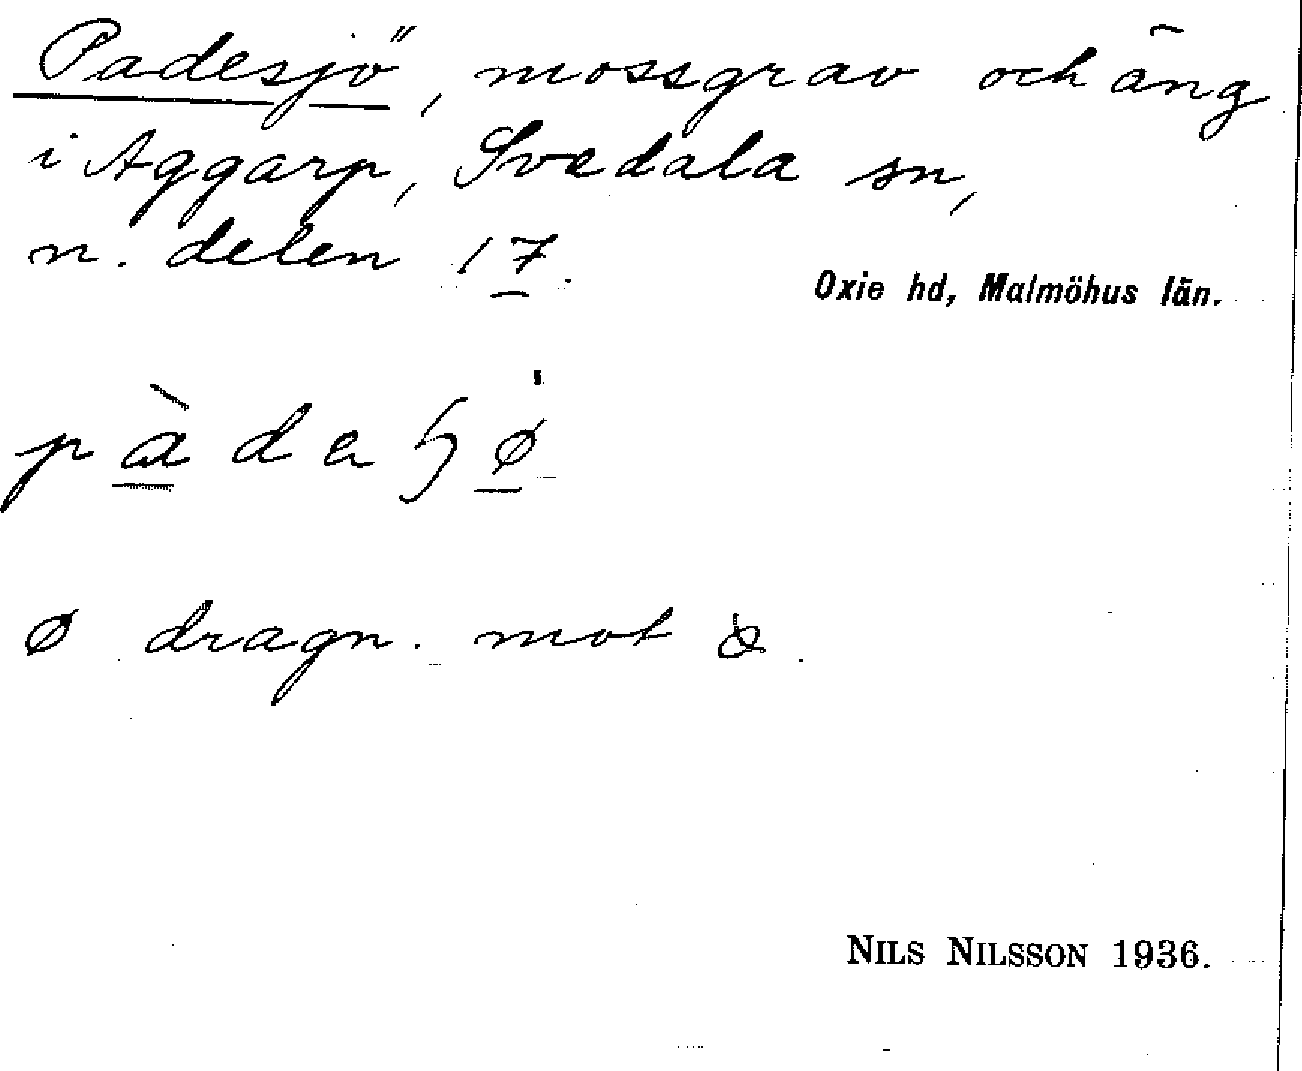 Padesjö, mossgrav och äng
i Aggarp, Svedala sn,
n. delen 17.
Oxie hd, Malmöhus län.
ø dragn. mot
NILS NILSSON 1936.